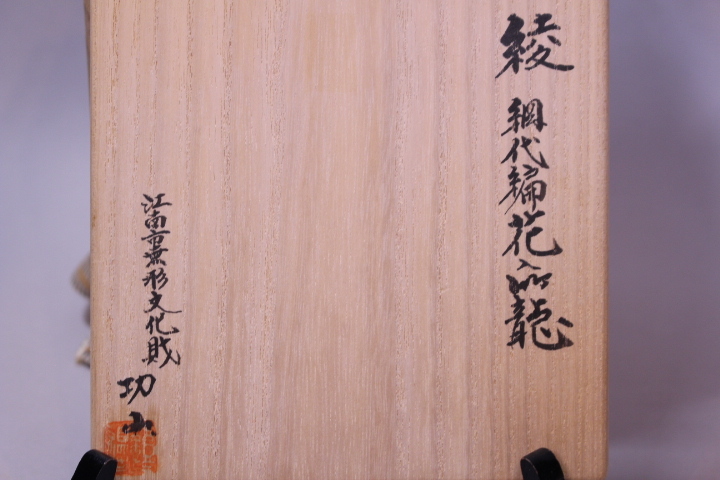 綾 網代編花入籠
江南市無形文化財
功山